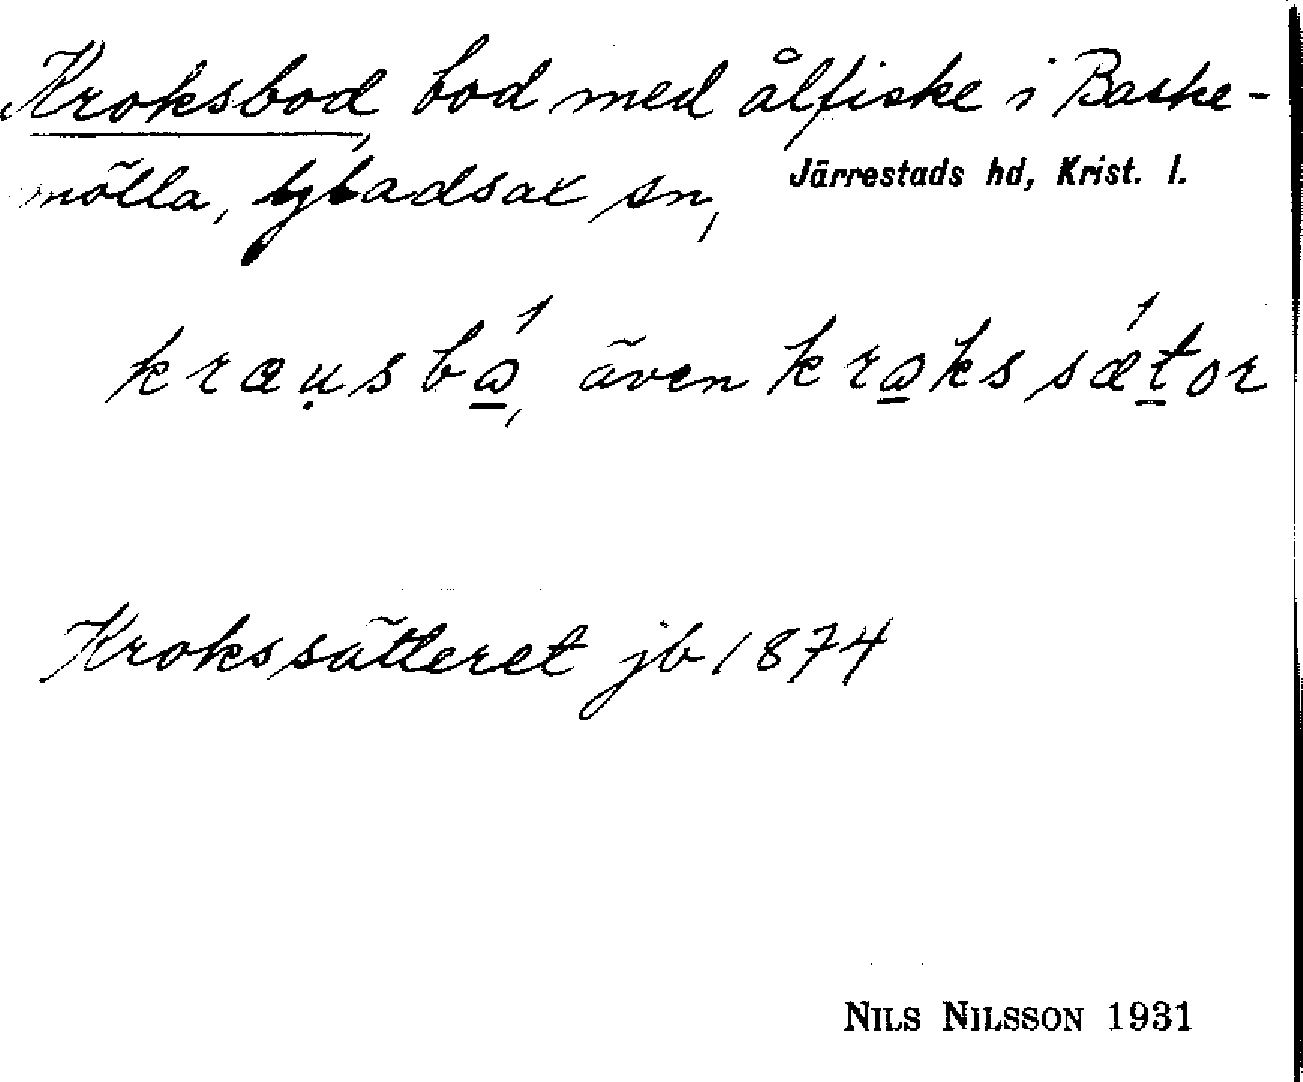 Kroksbod, bod med ålfiske i Baske-
mölla, Gladsax sn, Järrestads hd, Krist. l.
kræu̥sbǻ, även kråkssǽtor
Krokssätteret jb 1874
NILS NILSSON 1931